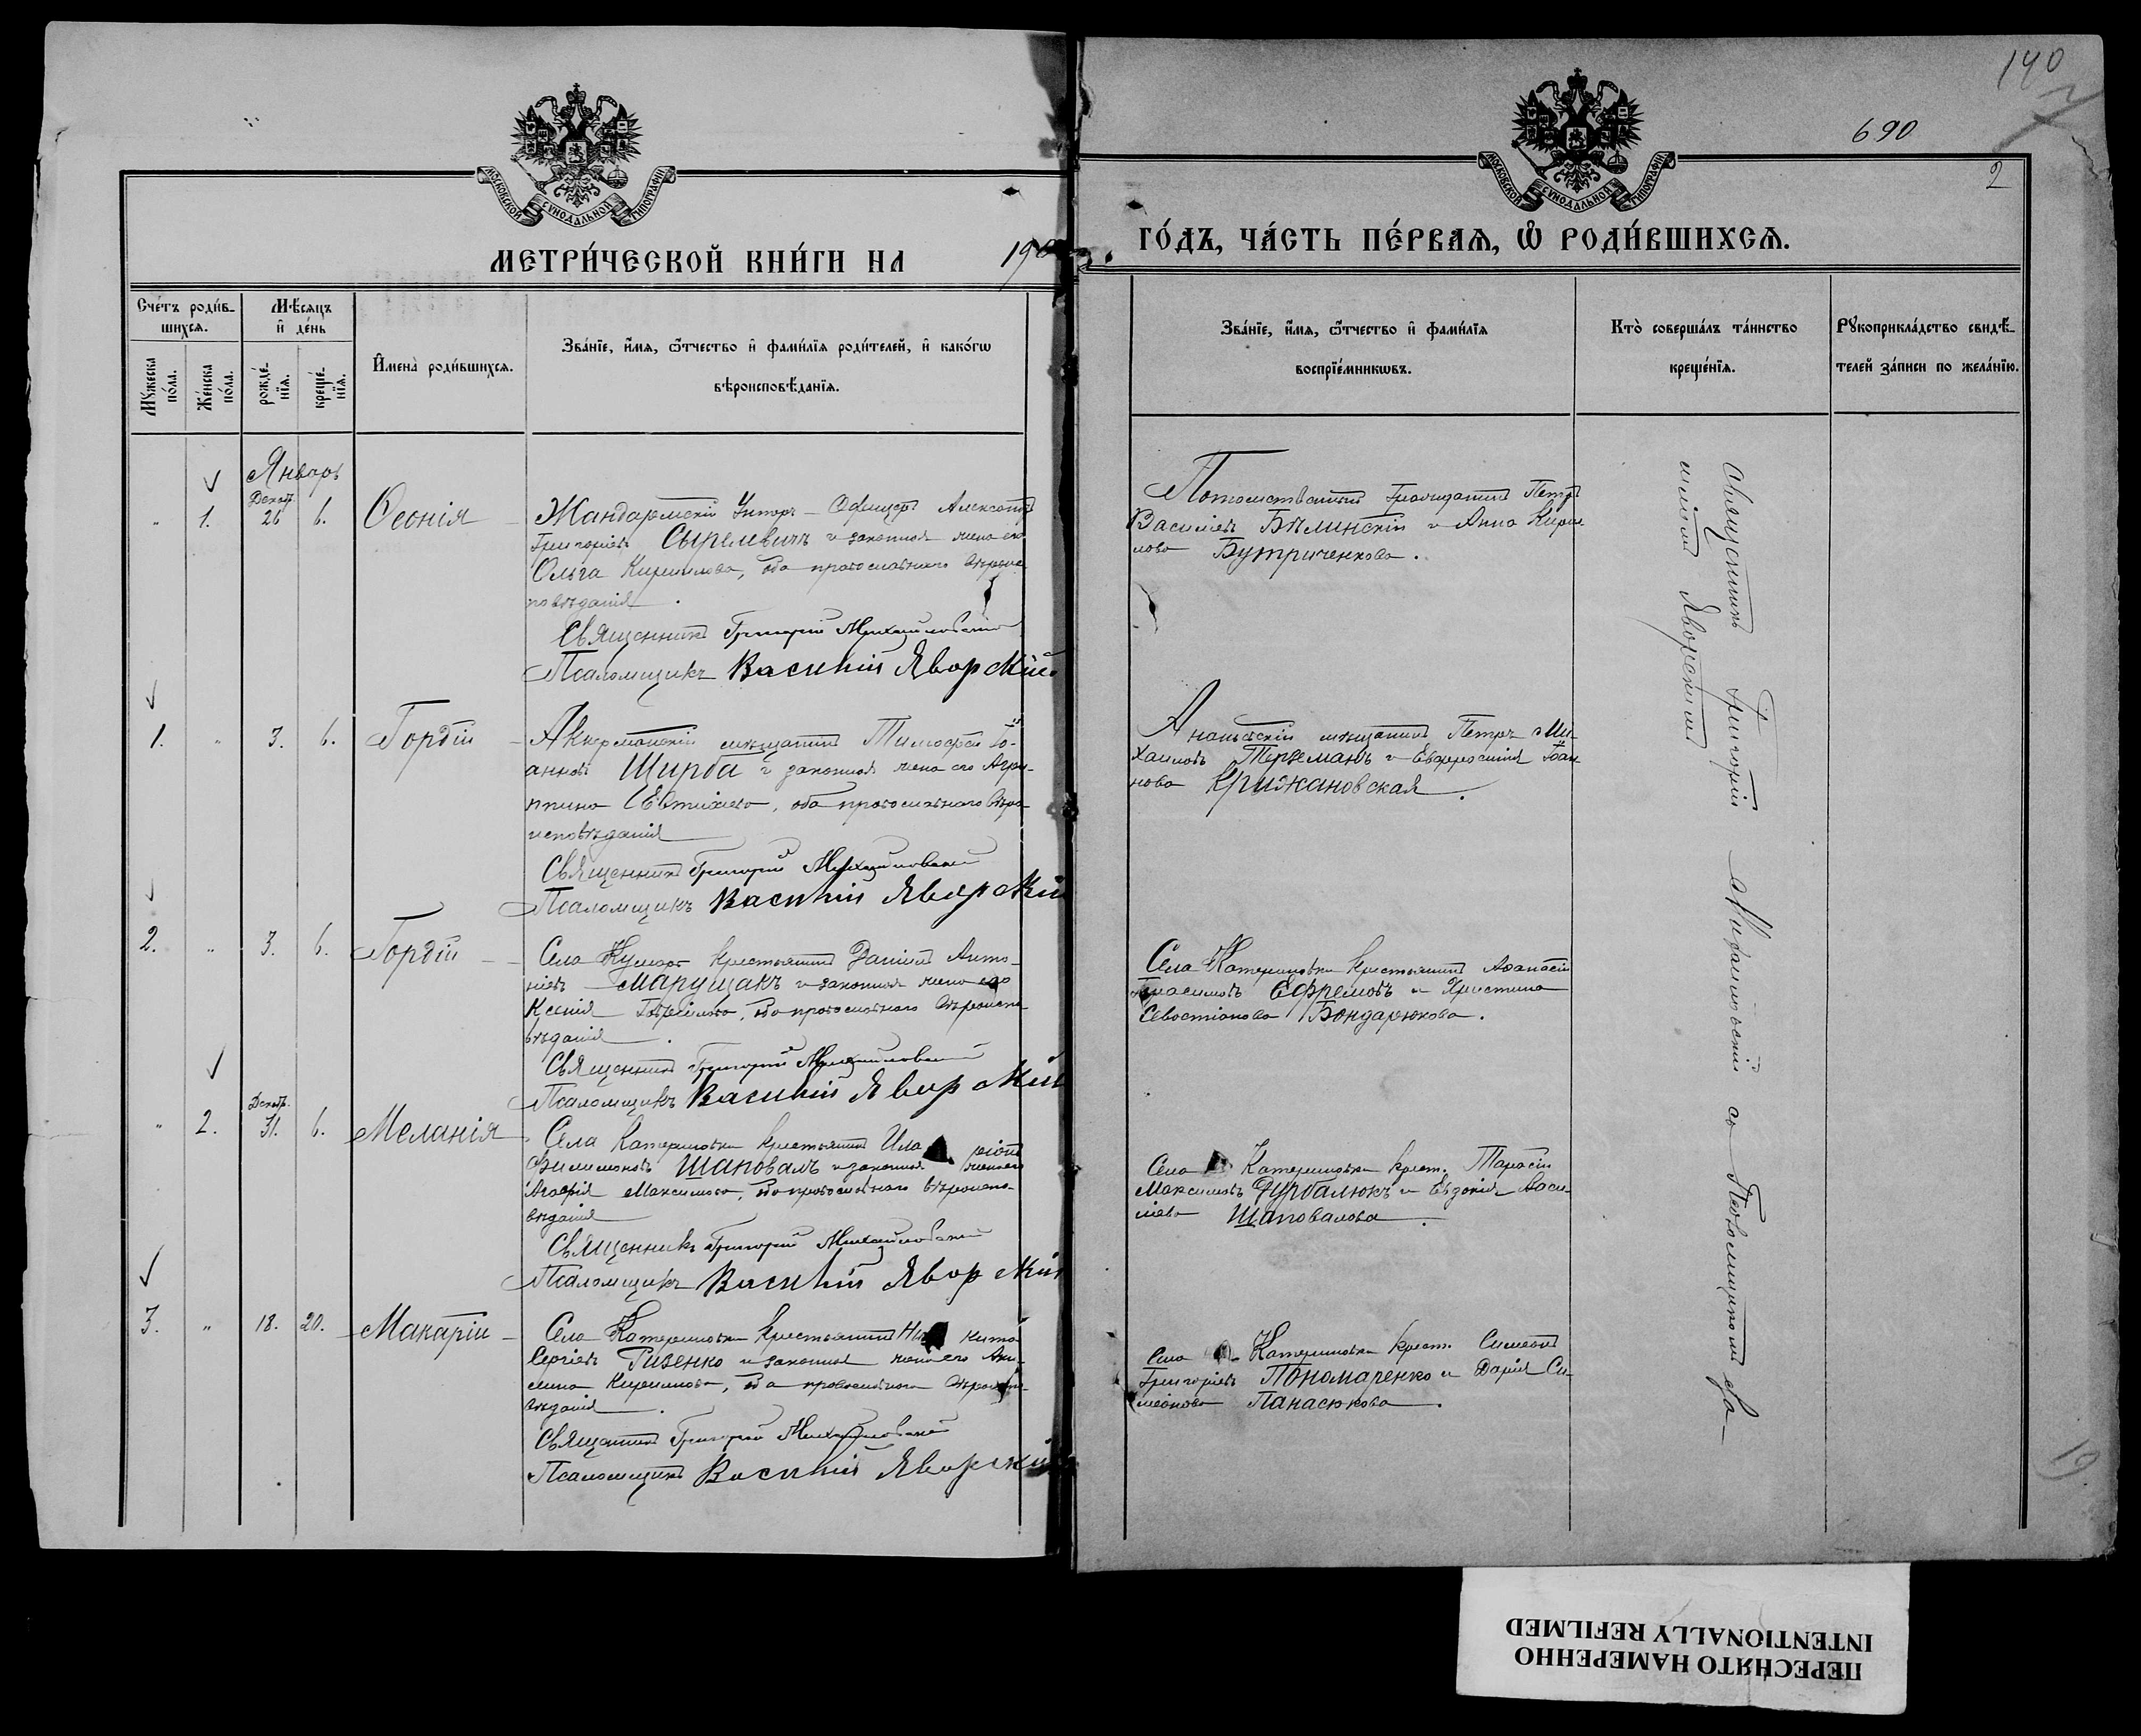 140
690
2
МОСКОВСКОЙ СѴНОДАЛЬНОЙ ТИПОГРАФІИ
МОСКОВСКОЙ СѴНОДАЛЬНОЙ ТИПОГРАФІИ
МЕТРИ́ЧЕСКОЙ КНИ́ГИ НА 190
ГО́ДЪ, ЧА́СТЬ ПЕ́РВАЯ, Ѡ҆ РОДИ́ВШИХСЯ.
Сче́тъ роди́вшихся.
Му́жеска по́ла.
Же́нска по́ла.
Мѣ́сяцъ и҆ де́нь
рожде́нїя.
креще́нїя.
И҆мена̀ роди́вшихся.
Зва́нїе, и҆́мя, ѻ҆́тчество и҆ фами́лїя роди́телей, и҆ како́гѡ
вѣроисповѣ́данїя.
Зва́нїе, и҆́мя, ѻ҆́тчество и҆ фами́лїя
воспрїе́мникѡвъ.
Кто̀ соверша́лъ та́инство
креще́нїя.
Рꙋкоприкла́дство свидѣ́-
телей за́писи по жела́нїю.
Январь
Декаб.
" 1. 26 6. Ѳеонія
Жандармскій Унтеръ-Офицеръ Александръ
Григоріевъ Сырелевичъ и законная жена его
Ольга Кириллова, оба православнаго вѣроис
повѣданія.
Священникъ Григорій Михайловскій
Псаломщикъ Василій Яворскій
Потомственный Гражданинъ Петръ
Василіевъ Бѣлинскій и Анна Кирил
лова Бутриченкова.
1. " 3. 6. Гордій
Аккерманскій мѣщанинъ Тимофей Іо-
анновъ Щирба и законная жена его Агри-
ппина Евтихіева, оба православнаго вѣро-
исповѣданія
Священникъ Григорій Михайловскій
Псаломщикъ Василій Яворскій
Ананьевскій мѣщанинъ Петръ Ми-
хаиловъ Терземанъ и Евфросинія Іоан
нова Крижановская.
2. " 3. 6. Гордій
Села Кумаръ крестьянинъ Даніилъ Анто-
ніевъ Марущакъ и законная жена его
Ксенія Гавріилова, оба православнаго вѣроиспо-
вѣданія.
Священникъ Григорій Михайловскій
Псаломщикъ Василій Яворскій
Села Катериновки крестьянинъ Аѳанасій
Герасимовъ Ефремовъ и Христина
Севастіанова Бондарюкова.
Декабр.
" 2. 31. 6. Меланія
Села Катериновки крестьянинъ Ила ріонъ
Филимоновъ Шаповалъ и законная жена его
Агафія Максимова, оба православнаго вѣроиспо-
вѣданія
Священникъ Григорій Михайловскій
Псаломщикъ Василій Яворскій
Села Катериновки крест. Тарасій
Максимовъ Дурбалюкъ и Евдокія Васи-
ліева Шаповалова.
3. " 18. 20. Макарій
Села Катериновки крестьянинъ Ни кита
Сергіевъ Гизенко и законная жена его Аки-
лина Кириллова, оба православнаго вѣроиспо-
вѣданія.
Священникъ Григорій Михайловскій
Псаломщикъ Василій Яворскій
Села Катериновки крест. Симеонъ
Григоріевъ Пономаренко и Дарія Си-
меонова Панасюкова.
Священникъ Григорій Михайловскій съ Псаломщикомъ Ва-
силіемъ Яворскимъ
19
ПЕРЕСНЯТО НАМЕРЕННО
INTENTIONALLY REFILMED